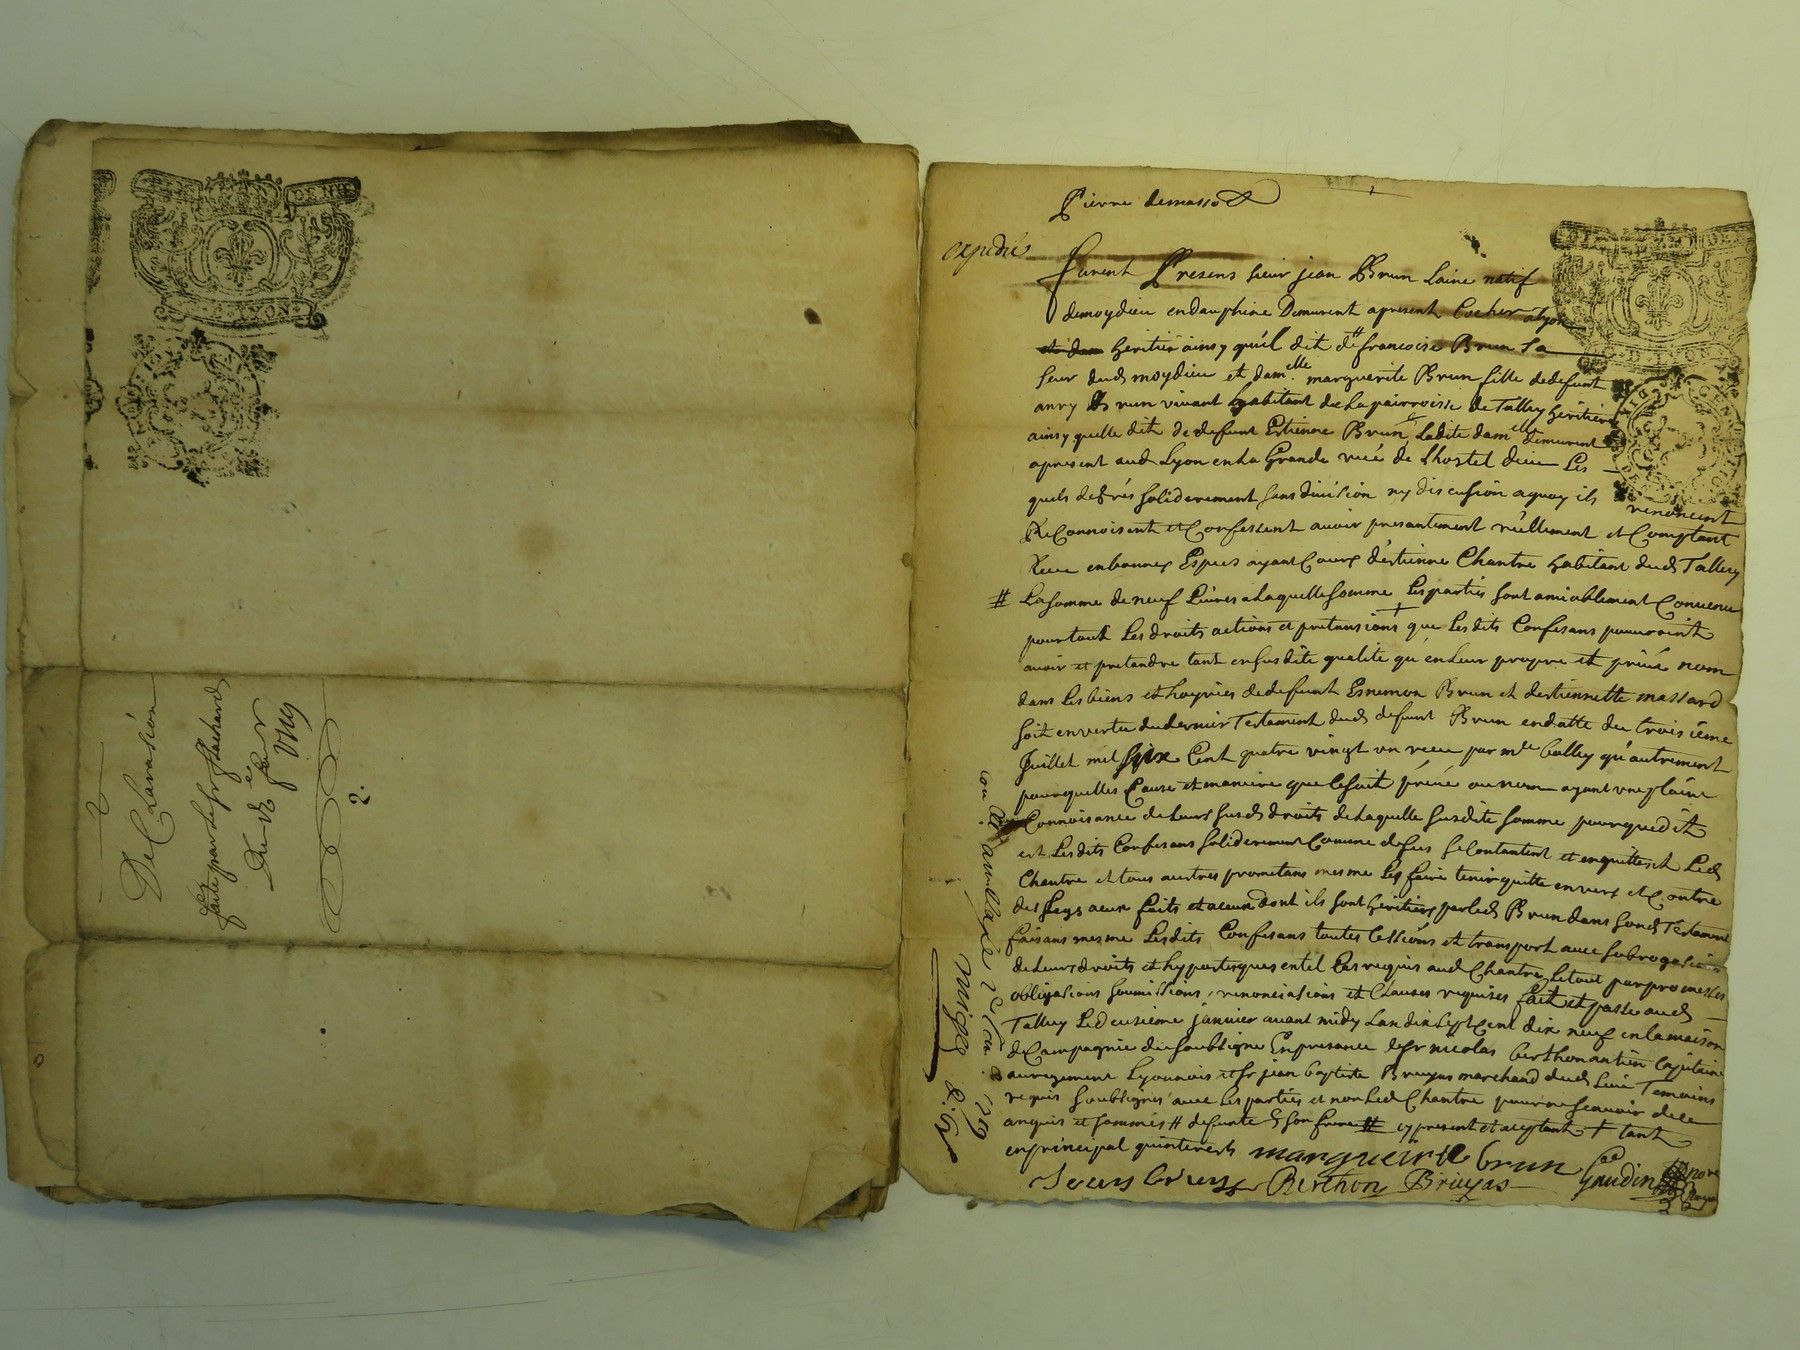 Declarasion
faitte par le sr
Du d
1719
2.
Pierre demasso
expedié
Furent Presens sieur jean Brun laine natif
demoydieu en dauphine Demurent apresent Cocher alyon
heritier ainsy quil dit de francoise Brun sa
seur dud moydieu et dam.elle marguerite Brun fille dedefunt
anry Brun vivant habitant de la pairroisse de Talluy heritiere
ainsy quelle dit de defunt Estienne Brun # Ladite damelle demurent
apresent aud Lyon en la Grande rue de Lhostel dieu Les
quels de grés soliderement sans division ny discusion aquoy ils renoncent
Reconnoisent et Confessent avoir presantement réellement et Comptant
Receu en bonnes Espces ayant Cours d'estienne Chantre habitant dud Talluy
# La somme de neuf Livres a laquelle somme Les parties sont amiablement Convenu
pour tout Les droits actions et pretansions + que Lesdits Confesans pourroint
avoir et pretandre tant en susdite qualité qu'en leur propre et privé nom
dans Les biens et hoyries dedefunt Esnemon Brun et destiennette massard
soit en vertu du dernier Testament dud defunt Brun en datte du trois ieme
Juillet mil six Cent quatre vingt un receu par me Balley qu'autrement
pour quelles Cause et maniere que Ce soit privé ou non ayant une plaine
Connoisance de Leurs susd droits de laquelle susdite somme pour que dit
est Lesdits Confesans soliderement Comme desus se Contantent et en quittent Led
Chantre et tous austres prometans mesme Les faire tenir quitte envers et Contre
des Legs a eux faits et a ceux dont ils sont heritiers par led Brun dans sond Testament
faisans mesme Lesdits Confesans toutes Cessions et transport avec subrogasion
de Leurs droits et hypotesques en tel Cas requis aud Chantre Le tout par promesses
obligasions soumissions, renonciasions et Clauses requises fait et passé aud
Talluy Le deusieme janvier avant midy Lan dix sept Cent dix neuf en la maison
de Campagnie du soubsigne En presance de sr nicolas berthon antien Capitaine
au regiment Lyonnois et sr jean baptiste Bruyas marchand dud Lieu Temoins
requis soubsignés avec Les parties et non Led Chantre pour ne scavoir de ce
anquis et sommés # defunte son frere # cy present et aceptant + tant
en principal qu'interests margueirite brun
Jean brun Berthon Bruyas Gaudin nore
Royal
con 1719